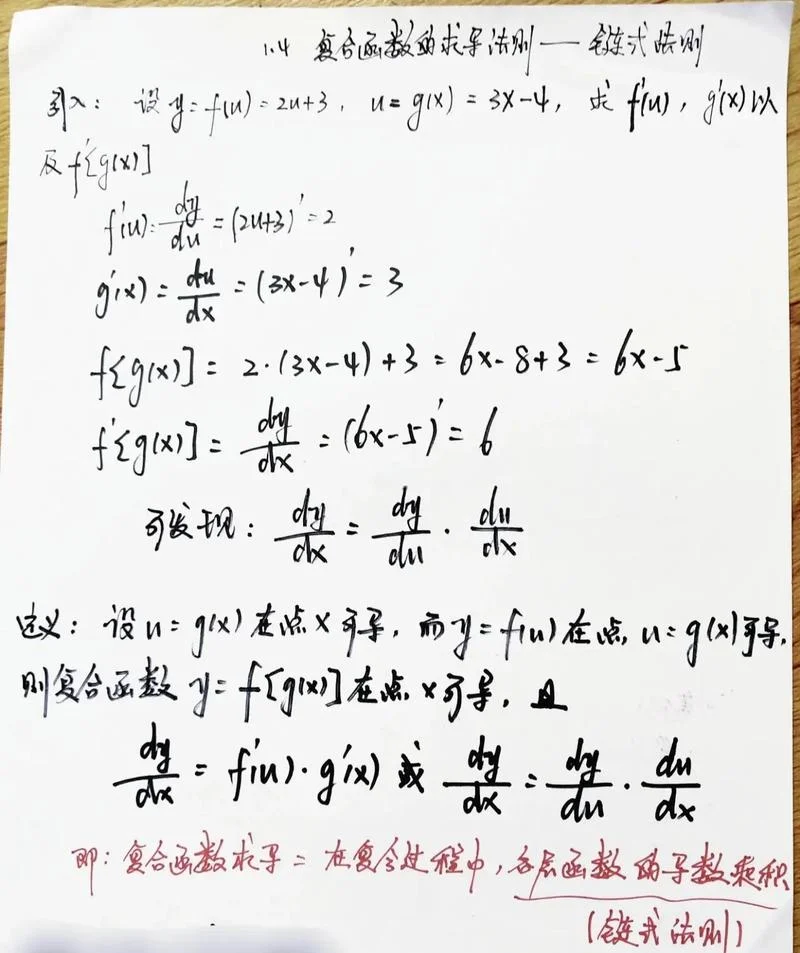 1.4 复合函数的求导法则——链式法则
引入: 设 y=f(u)=2u+3, u=g(x)=3x-4, 求 f'(u), g'(x)以
及 f'[g(x)]
f'(u)=dy/du=(2u+3)'=2
g'(x)=du/dx=(3x-4)'=3
f[g(x)]=2·(3x-4)+3=6x-8+3=6x-5
f'[g(x)]=dy/dx=(6x-5)'=6
可发现: dy/dx=dy/du·du/dx
定义: 设u=g(x)在点x可导, 而y=f(u)在点u=g(x)可导,
则复合函数 y=f[g(x)]在点x可导, 且
dy/dx=f'(u)·g'(x) 或 dy/dx=dy/du·du/dx
即: 复合函数求导=在复合过程中, 各层函数的导数乘积
(链式法则)